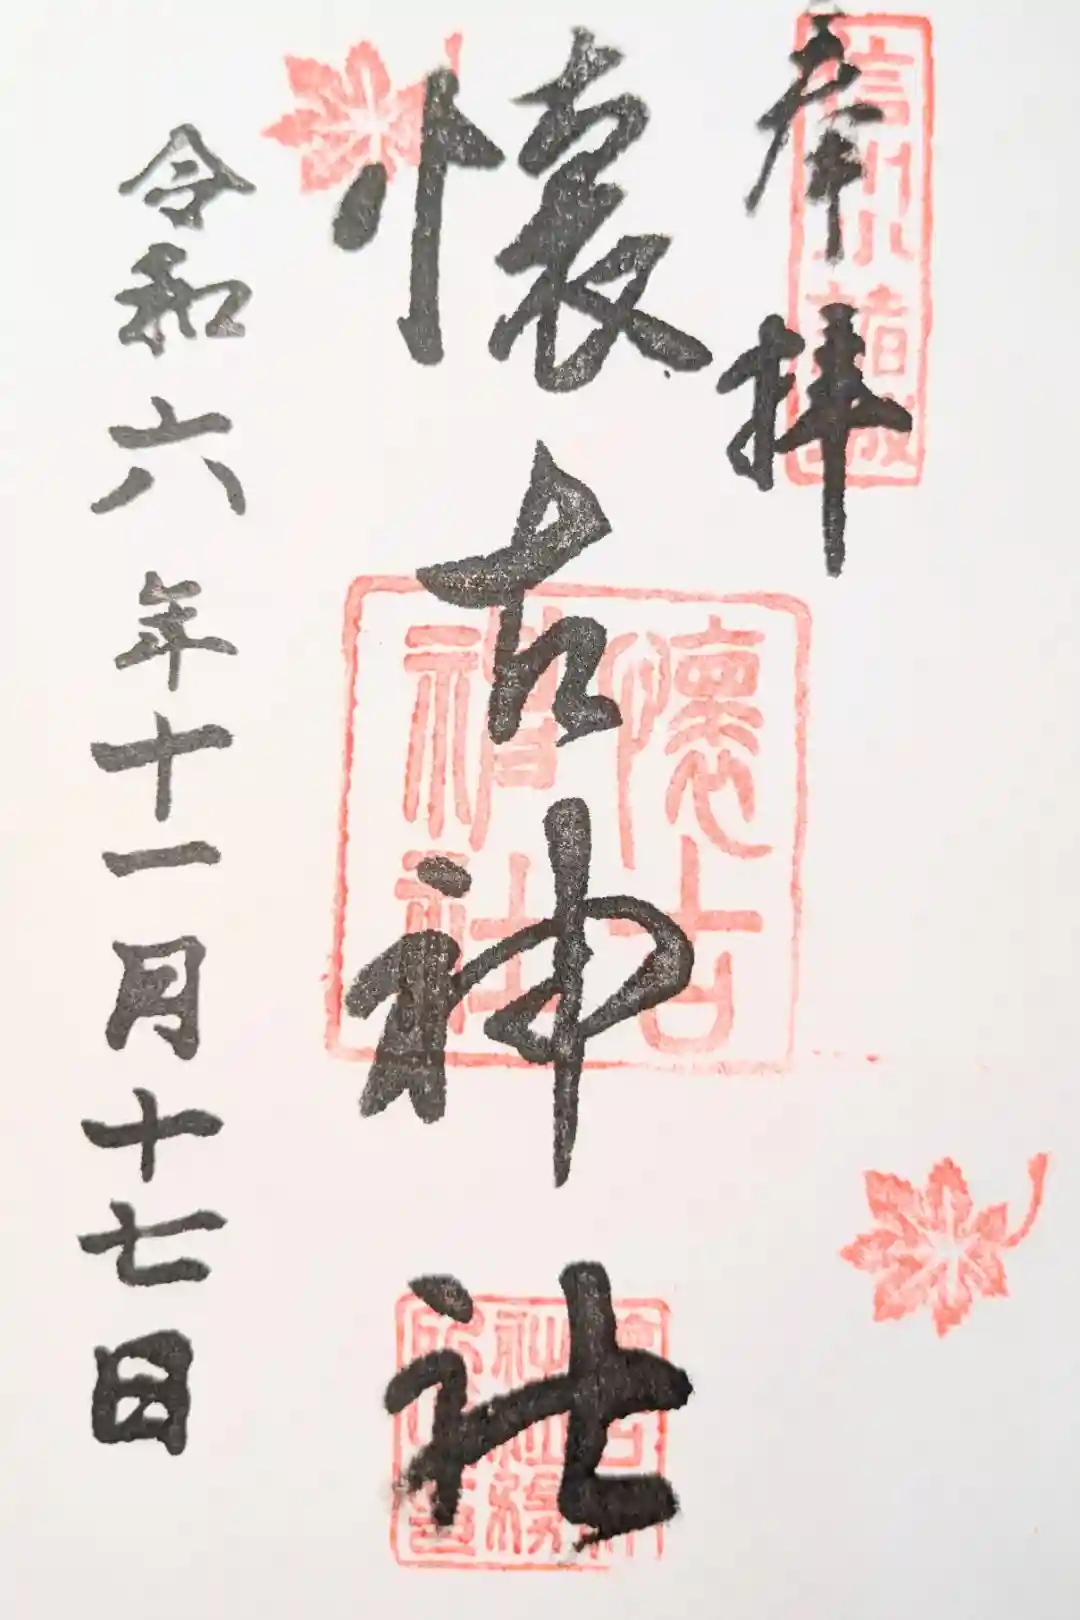 奉拝
信州小諸城
懐古神社
懐古
神社
令和六年十一月十七日